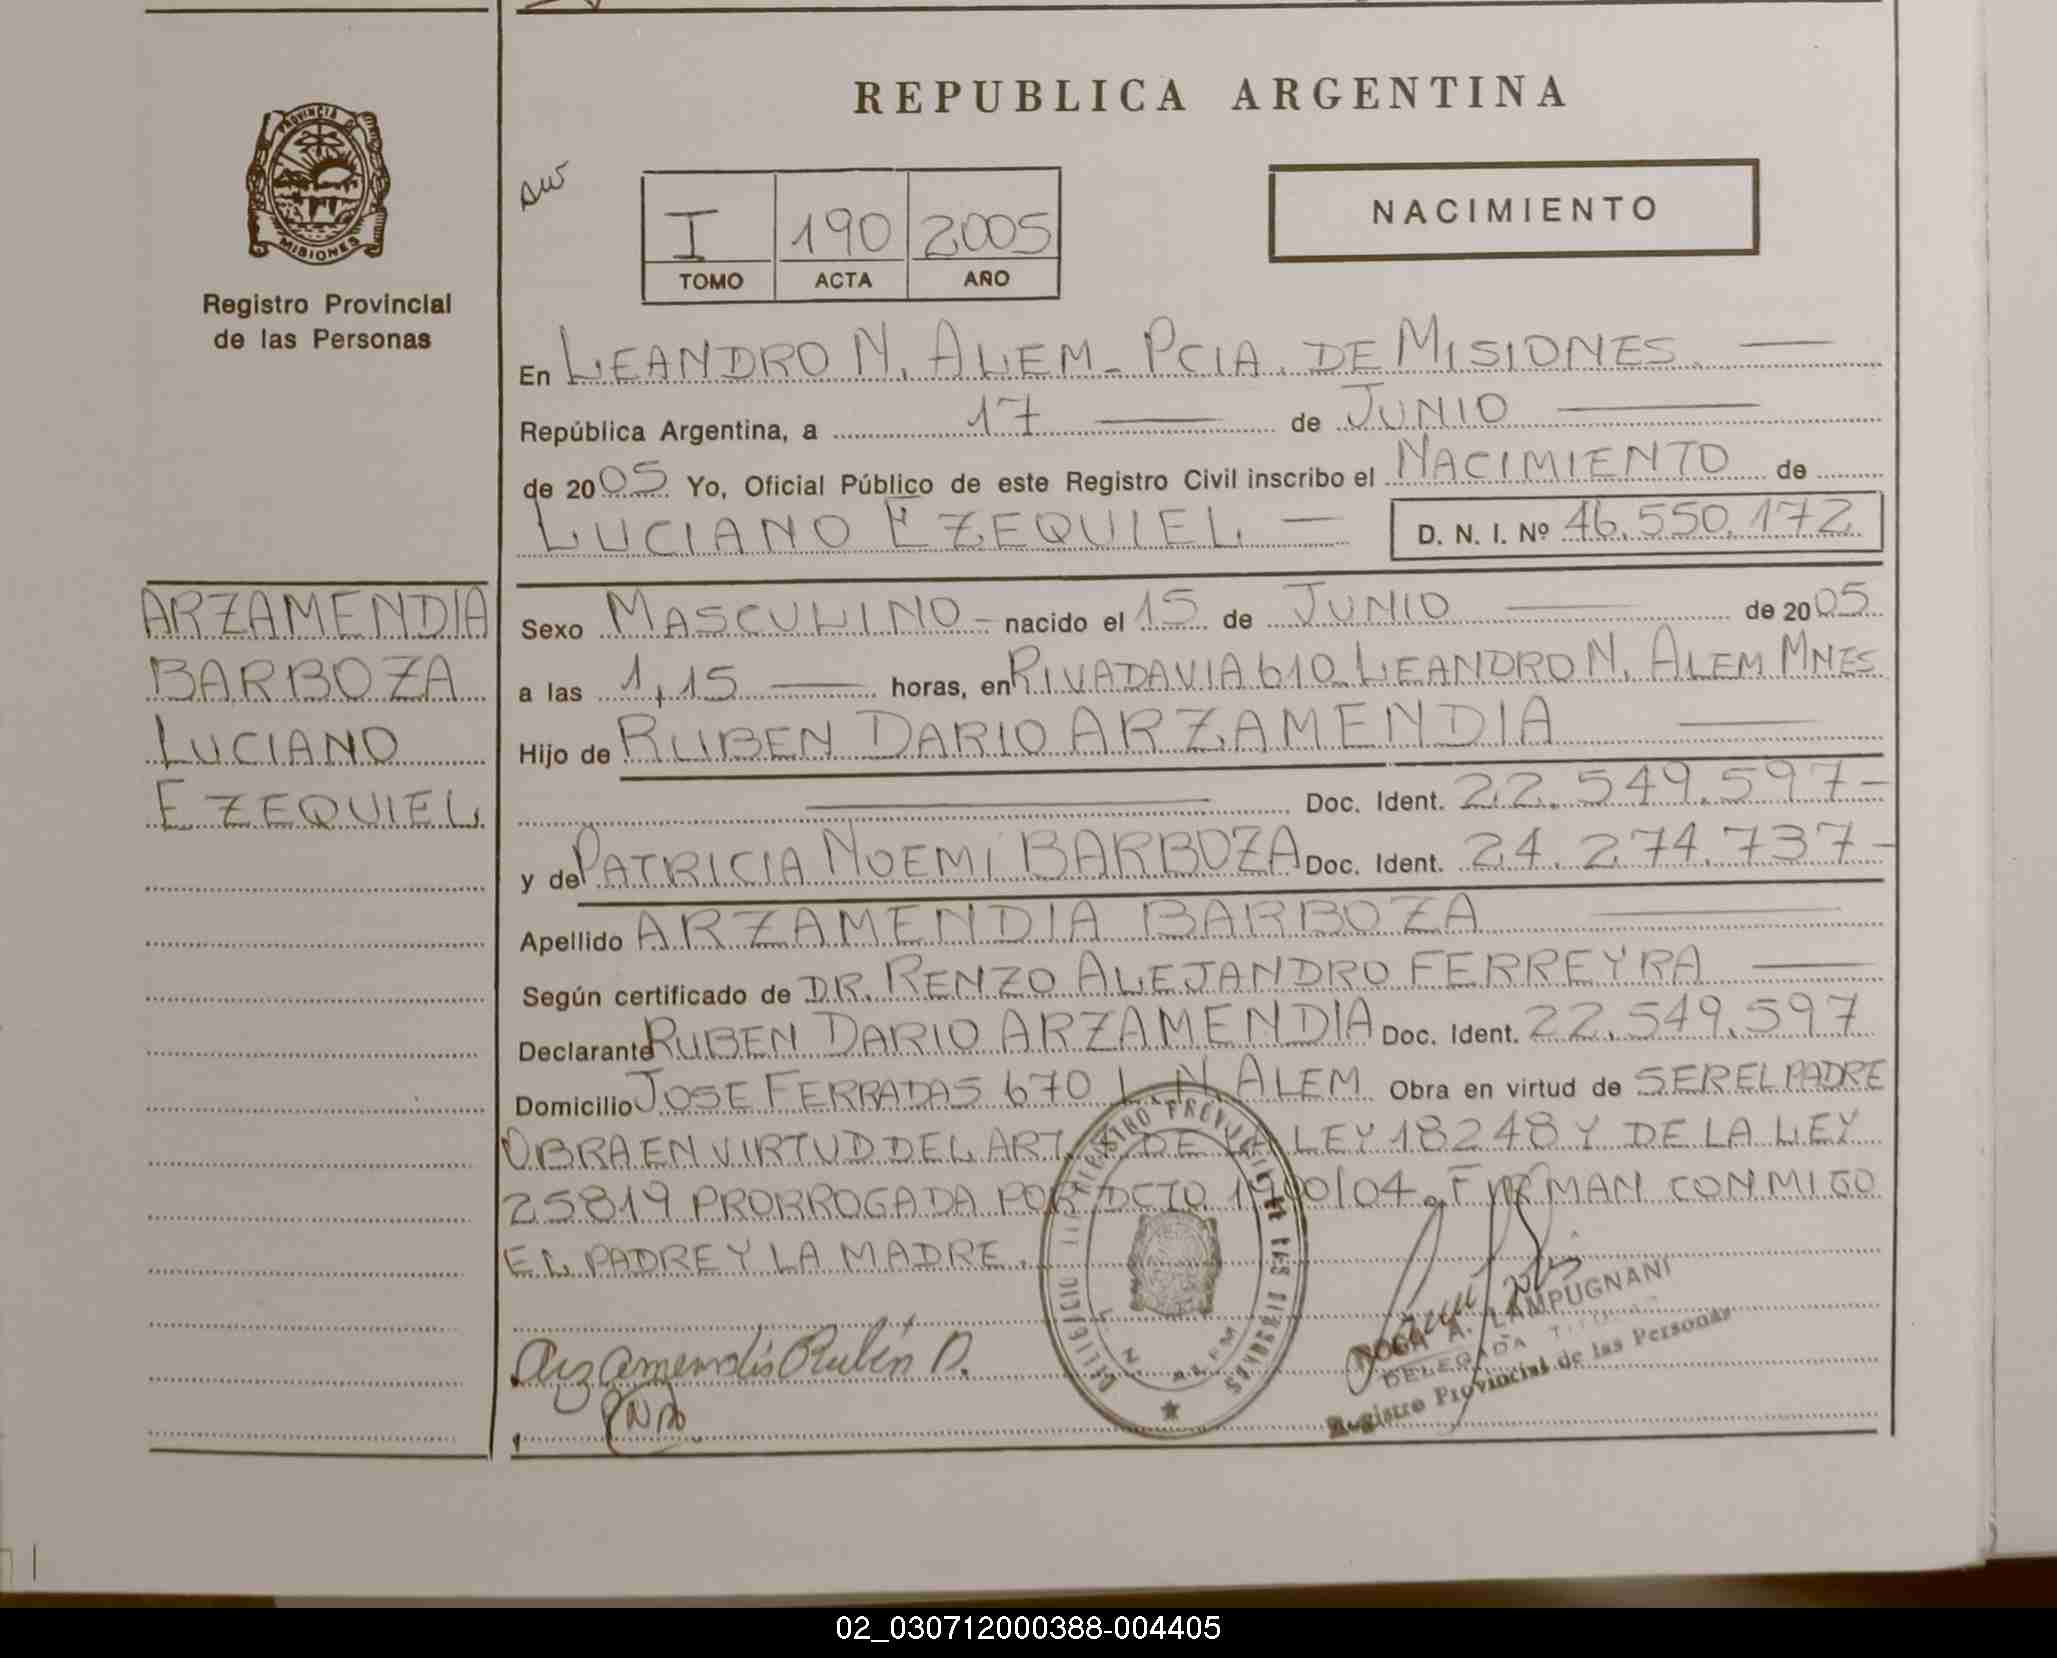 REPUBLICA ARGENTINA
PROVINCIA DE
MISIONES
Registro Provincial
de las Personas
I 190 2005
TOMO ACTA AÑO
NACIMIENTO
En LEANDRO N. ALEM - PCIA. DE MISIONES
República Argentina, a 17 de JUNIO
de 2005 Yo, Oficial Público de este Registro Civil inscribo el NACIMIENTO de
LUCIANO EZEQUIEL D. N. I. Nº 46.550.172
ARZAMENDIA
BARBOZA
LUCIANO
EZEQUIEL
Sexo MASCULINO nacido el 15 de JUNIO de 2005
a las 1,15 horas, en RIVADAVIA 610 LEANDRO N. ALEM MNES
Hijo de RUBEN DARIO ARZAMENDIA
Doc. Ident. 22.549.597-
y de PATRICIA NOEMI BARBOZA Doc. Ident. 24.274.737-
Apellido ARZAMENDIA BARBOZA
Según certificado de DR. RENZO ALEJANDRO FERREYRA
Declarante RUBEN DARIO ARZAMENDIA Doc. Ident. 22.549.597
Domicilio JOSE FERRADAS 670 L. N ALEM Obra en virtud de SER EL PADRE
OBRA EN VIRTUD DEL ART. DE LA LEY 18248 Y DE LA LEY
25819 PRORROGADA POR DCTO 1900/04. FIRMAN CONMIGO
EL PADRE Y LA MADRE.
Arzamendia Rubén D.
L. N. ALEM
A. LAMPUGNANI
DELEGADA TITULAR
Registro Provincial de las Personas
02_030712000388-004405